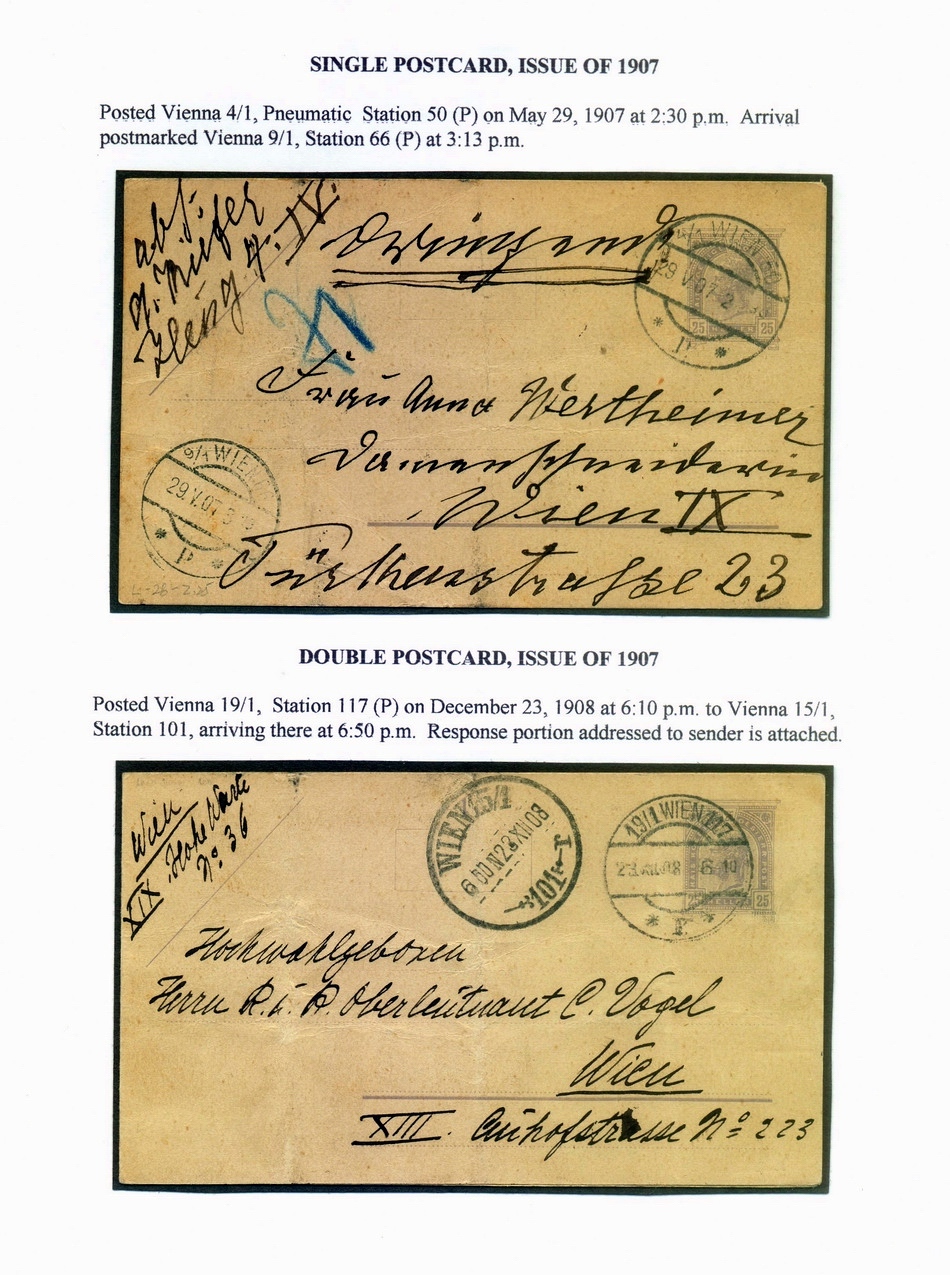 SINGLE POSTCARD, ISSUE OF 1907
Posted Vienna 4/1, Pneumatic Station 50 (P) on May 29, 1907 at 2:30 p.m. Arrival
postmarked Vienna 9/1, Station 66 (P) at 3:13 p.m.
abs:
IV.
Dringend
4/1 WIEN 50
29 V 07 2
25 25
P
Frau Anna Wertheimer
Damenschneiderin
Wien IX
Türkenstrasse 23
9/1 WIEN
29.V.07
P
DOUBLE POSTCARD, ISSUE OF 1907
Posted Vienna 19/1, Station 117 (P) on December 23, 1908 at 6:10 p.m. to Vienna 15/1,
Station 101, arriving there at 6:50 p.m. Response portion addressed to sender is attached.
Wien
XIX Hohe Warte
No: 36
WIEN 15/1
6 50 N 23 XII 08
T
*101*
19/1 WIEN 117
23.XII.08 6 10
25 25
Hochwohlgeboren
Herrn K. u. K. Oberleutnant C. Vogel
Wien
XIII. Auhofstrasse No 223